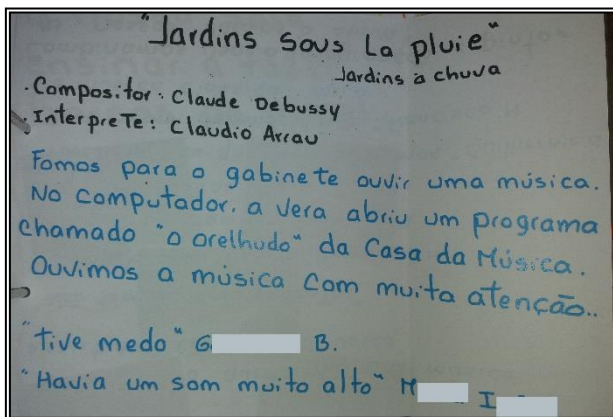 "Jardins sous La pluie"
Jardins à chuva
. Compositor: Claude Debussy
. InterpreTe: Claudio Arrau
Fomos para o gabinete ouvir uma música.
No computador. a Vera abriu um programa
chamado "o orelhudo" da Casa da Música.
Ouvimos a música com muita atenção..
"Tive medo" G B.
"Havia um som muito alto" M I